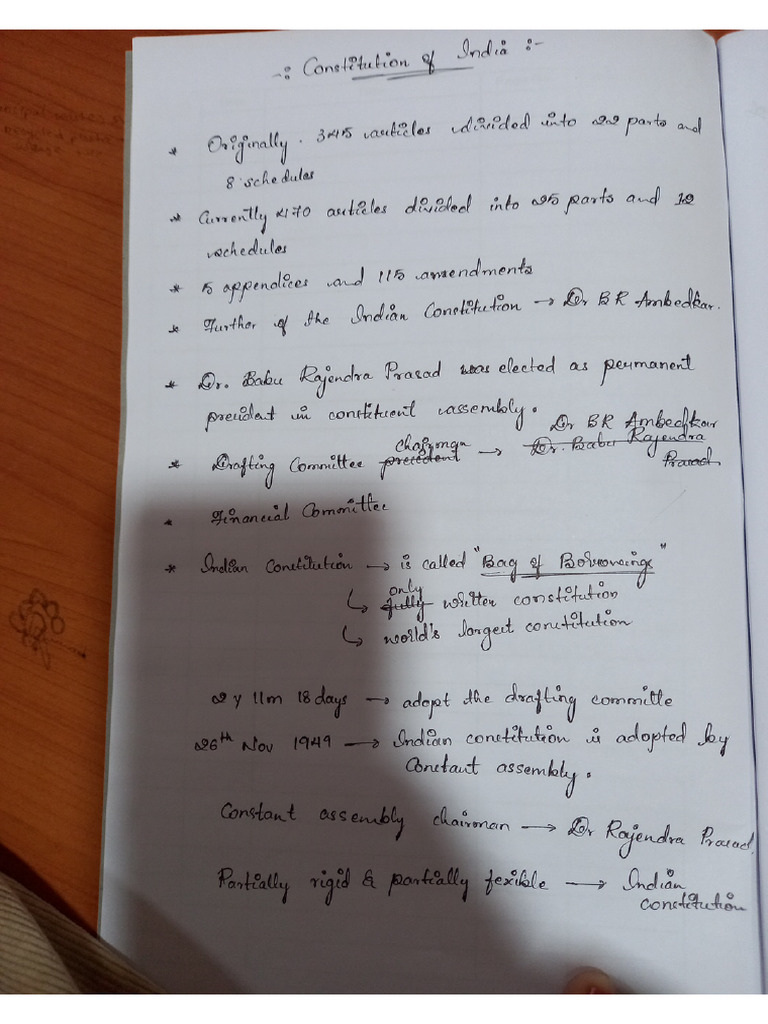 -: Constitution of India :-
* Originally . 345 articles divided into 22 parts and
8 schedules
* Currently 470 articles divided into 25 parts and 12
schedules
* 5 appendices and 115 amendments
* Further of the Indian Constitution → Dr BR Ambedkar.
* Dr. Babu Rajendra Prasad was elected as permanent
president in constituent assembly.
Dr BR Ambedkar
* Drafting Committee precident chairman → Dr. Babu Rajendra
Prasad
* Financial Committee
* Indian Constitution → is called "Bag of Borrowings"
↳ fully only written constitution
↳ world's largest constitution
2 y 11m 18 days → adopt the drafting committe
26th Nov 1949 → Indian constitution is adopted by
Constant assembly.
Constant assembly chairman → Dr Rajendra Prasad.
Partially rigid & partially fexible → Indian
constitution